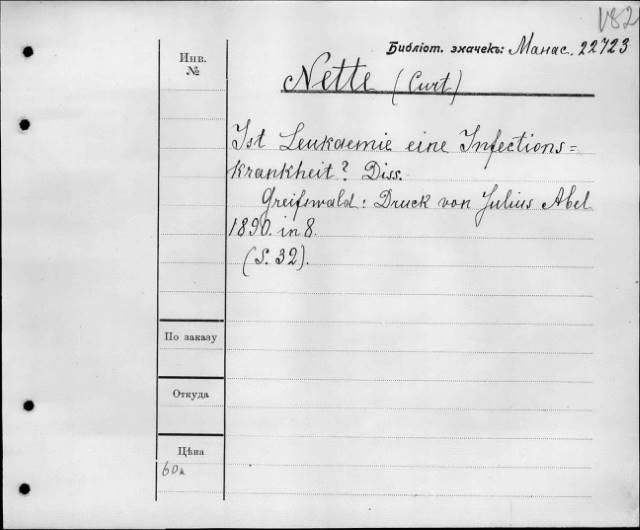 V82
Библіот. значекъ: Манас. 22723
Инв.
№
Nette (Curt)
Ist Leukaemie eine Infections=
krankheit? Diss.
Greifswald: Druck von Julius Abel
1890. in 8.
(S. 32).
По заказу
Откуда
Цѣна
60к